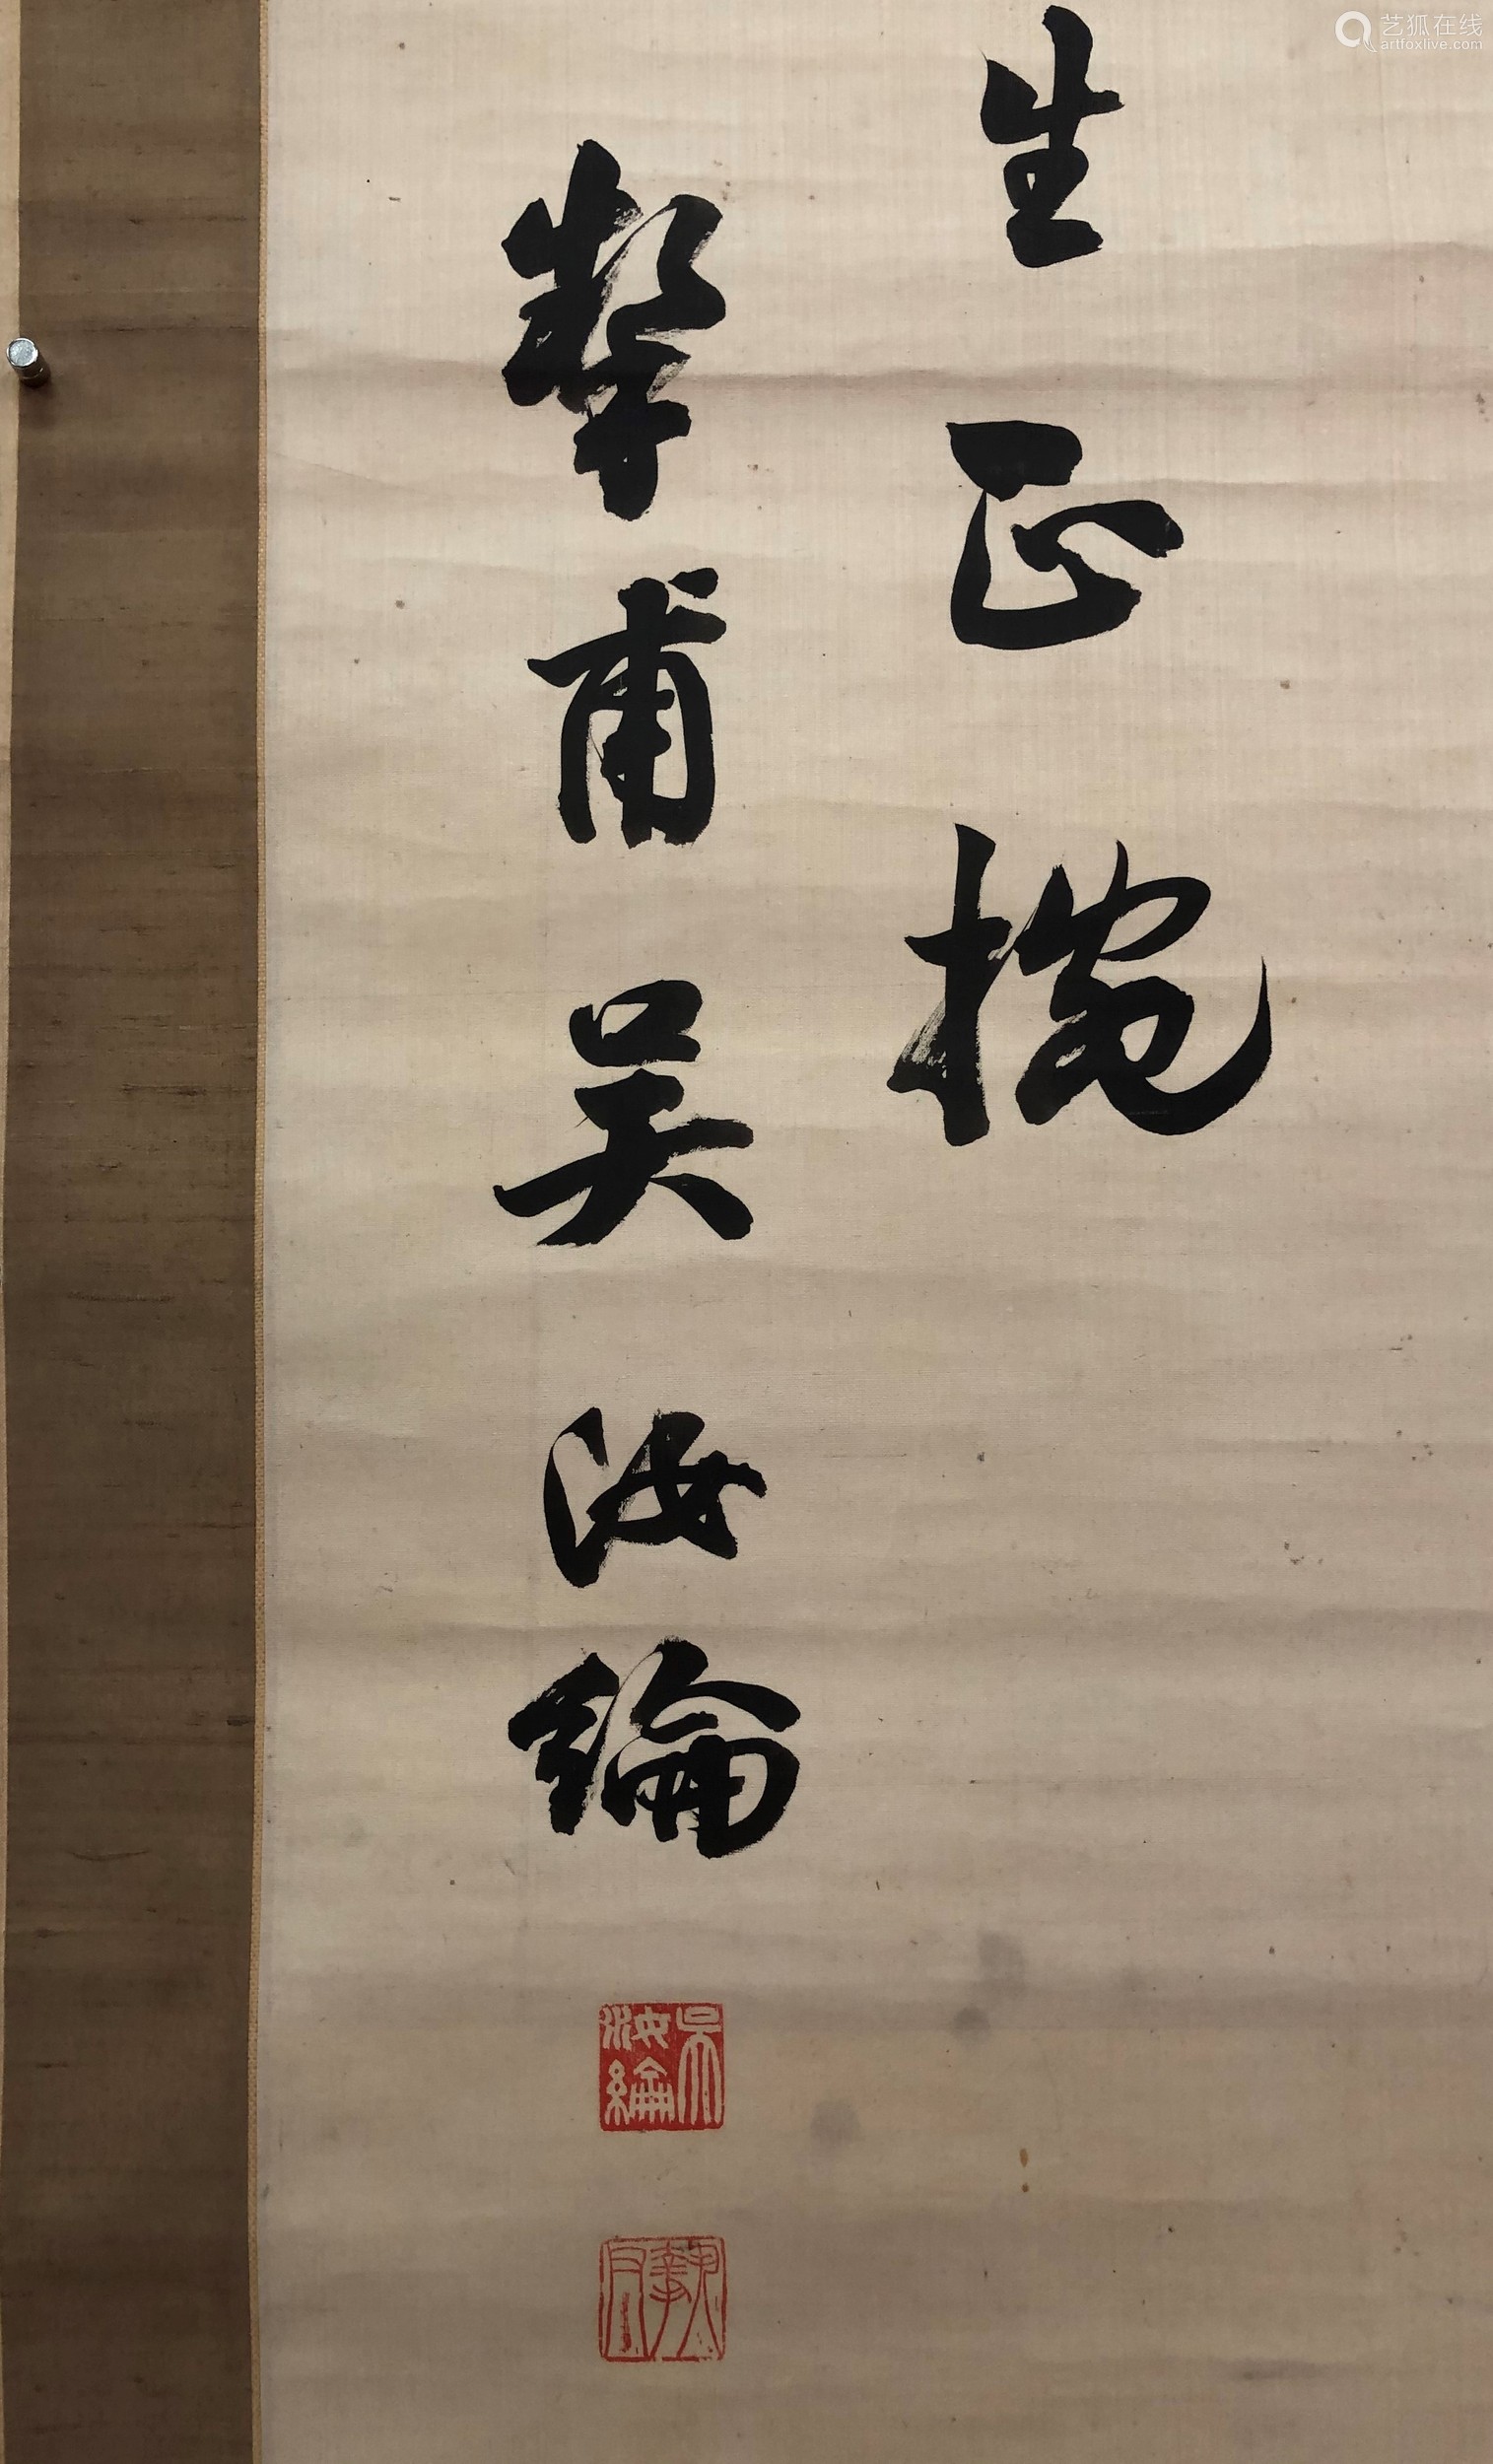 生正腕
挚甫吴汝綸
吴汝綸
艺狐在线
artfoxlive.com